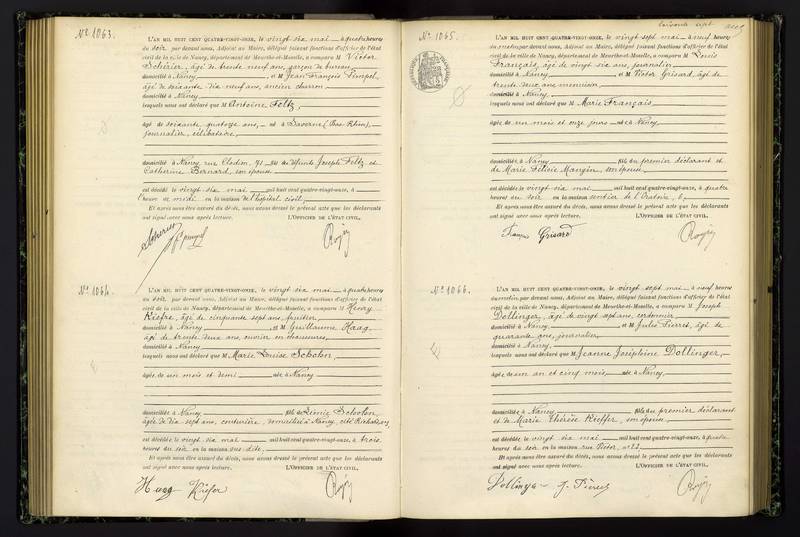 No. 1063.
L'AN MIL HUIT CENT QUATRE-VINGT-ONZE, le vingt six mai à quatre heures
du soir par devant nous, Adjoint au Maire, délégué faisant fonctions d'officier de l'état
civil de la ville de Nancy, département de Meurthe-et-Moselle, a comparu M Victor
Scherier, âgé de trente neuf ans, garçon de bureau
domicilié à Nancy, et M Jean François Pimpel,
âgé de soixante dix neuf ans, ancien charron
domicilié à Nancy
lesquels nous ont déclaré que M Antoine Feltz,
âgé de soixante quatorze ans, né à Saverne (Bas-Rhin),
journalier, célibataire,
domicilié à Nancy, rue Clodion, 71 fils de défunts Joseph Feltz et
Catherine Bernard, son épouse
est décédé le vingt six mai mil huit cent quatre-vingt-onze, à
l'heure de midi en la maison de l'hôpital civil
Et après nous être assuré du décès, nous avons dressé le présent acte que les déclarants
ont signé avec nous après lecture. L'OFFICIER DE L'ÉTAT CIVIL,
No. 1064.
L'AN MIL HUIT CENT QUATRE-VINGT-ONZE, le vingt six mai à quatre heures
du soir par devant nous, Adjoint au Maire, délégué faisant fonctions d'officier de l'état
civil de la ville de Nancy, département de Meurthe-et-Moselle, a comparu M Henry
Kiefer, âgé de cinquante sept ans, fruitier
domicilié à Nancy et M Guillaume Haag
âgé de trente deux ans, ouvrier en chaussures,
domicilié à Nancy
lesquels nous ont déclaré que M Marie Louise Scholon,
âgée de un mois et demi née à Nancy
domiciliée à Nancy fille de Scholon,
âgée de dix sept ans, couturière, domiciliée à Nancy,
est décédée le vingt six mai mil huit cent quatre-vingt-onze, à trois
heures du soir en la maison sus dite,
Et après nous être assuré du décès, nous avons dressé le présent acte que les déclarants
ont signé avec nous après lecture. L'OFFICIER DE L'ÉTAT CIVIL,
Haag Kiefer
soixante sept
No. 1065.
L'AN MIL HUIT CENT QUATRE-VINGT-ONZE, le vingt sept mai à neuf heures
du matin par devant nous, Adjoint au Maire, délégué faisant fonctions d'officier de l'état
civil de la ville de Nancy, département de Meurthe-et-Moselle, a comparu M Louis
Français, âgé de vingt six ans, journalier
domicilié à Nancy et M Victor Grisard, âgé de
trente deux ans
domicilié à Nancy
lesquels nous ont déclaré que M Marie Français
âgée de un mois et onze jours née à Nancy
domiciliée à Nancy fille du premier déclarant et
de Marie Félicie Mangin, son épouse
est décédée le vingt six mai mil huit cent quatre-vingt-onze, à quatre
heures du soir en la maison sentier de l'Oratoire, 6
Et après nous être assuré du décès, nous avons dressé le présent acte que les déclarants
ont signé avec nous après lecture. L'OFFICIER DE L'ÉTAT CIVIL,
Français Grisard
No. 1066.
L'AN MIL HUIT CENT QUATRE-VINGT-ONZE, le vingt sept mai à neuf heures
du matin par devant nous, Adjoint au Maire, délégué faisant fonctions d'officier de l'état
civil de la ville de Nancy, département de Meurthe-et-Moselle, a comparu M Joseph
Dollinger, âgé de vingt sept ans, cordonnier
domicilié à Nancy et M Jules Pierret, âgé de
quarante ans, journalier
domicilié à Nancy
lesquels nous ont déclaré que M Jeanne Joséphine Dollinger,
âgée de un an et cinq mois née à Nancy,
domiciliée à Nancy fille du premier déclarant
et de Marie Thérèse Kieffer, son épouse
est décédée le vingt six mai mil huit cent quatre-vingt-onze, à quatre
heures du soir en la maison rue
Et après nous être assuré du décès, nous avons dressé le présent acte que les déclarants
ont signé avec nous après lecture. L'OFFICIER DE L'ÉTAT CIVIL,
Dollinger J. Pierret